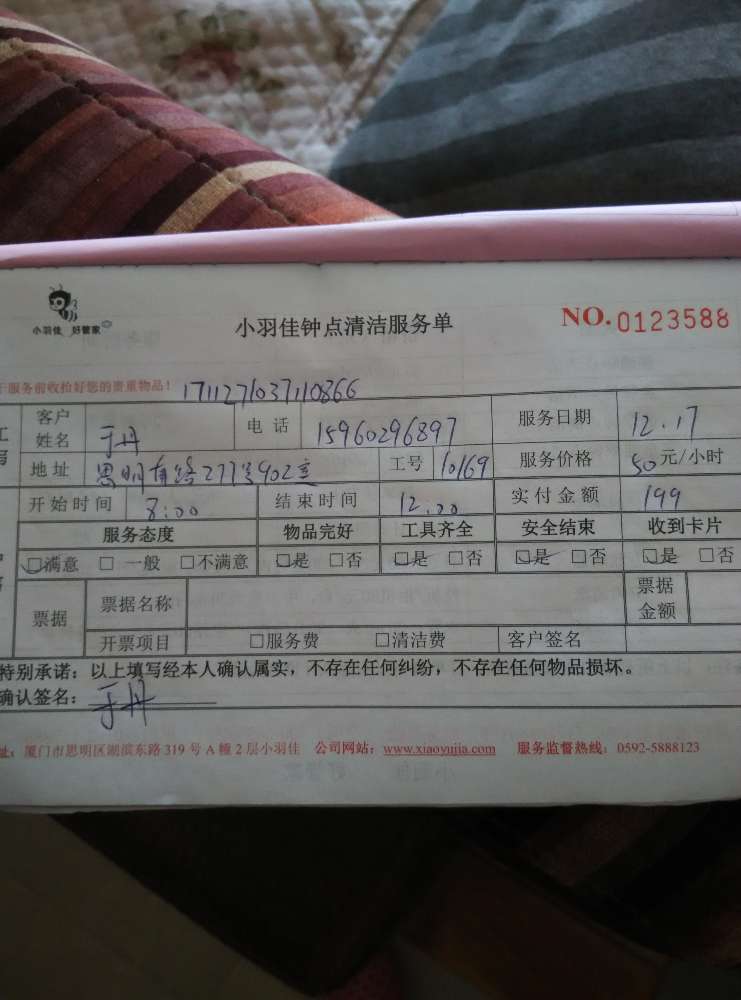 小羽佳 好管家
小羽佳钟点清洁服务单
NO.0123588
于服务前收拾好您的贵重物品！ 1711271037110866
客户姓名 于丹 电话 15960296897 服务日期 12.17
地址 思明南路277号902室 工号 10169 服务价格 50元/小时
开始时间 8:00 结束时间 12.00 实付金额 199
服务态度 物品完好 工具齐全 安全结束 收到卡片
☑满意 □一般 □不满意 ☑是 □否 ☑是 □否 ☑是 □否 ☑是 □否
票据 票据名称 票据金额
开票项目 □服务费 □清洁费 客户签名
特别承诺：以上填写经本人确认属实，不存在任何纠纷，不存在任何物品损坏。
确认签名：于丹
址：厦门市思明区湖滨东路319号A幢2层小羽佳 公司网站：www.xiaoyujia.com 服务监督热线：0592-5888123